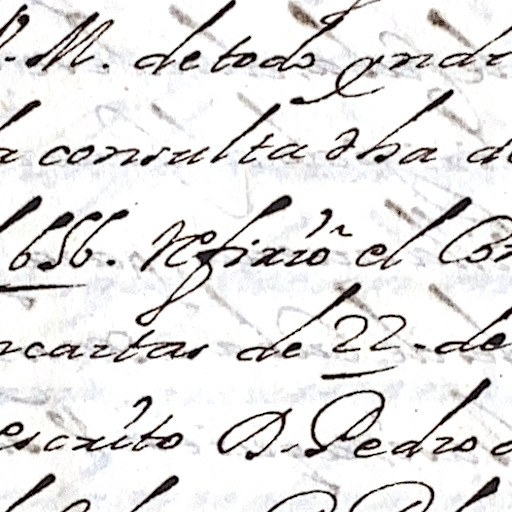 V. M. de todo, y ndi
a consulta dha de
1656. Refirio el Con
n cartas de 22. de
escrito D. Pedro d